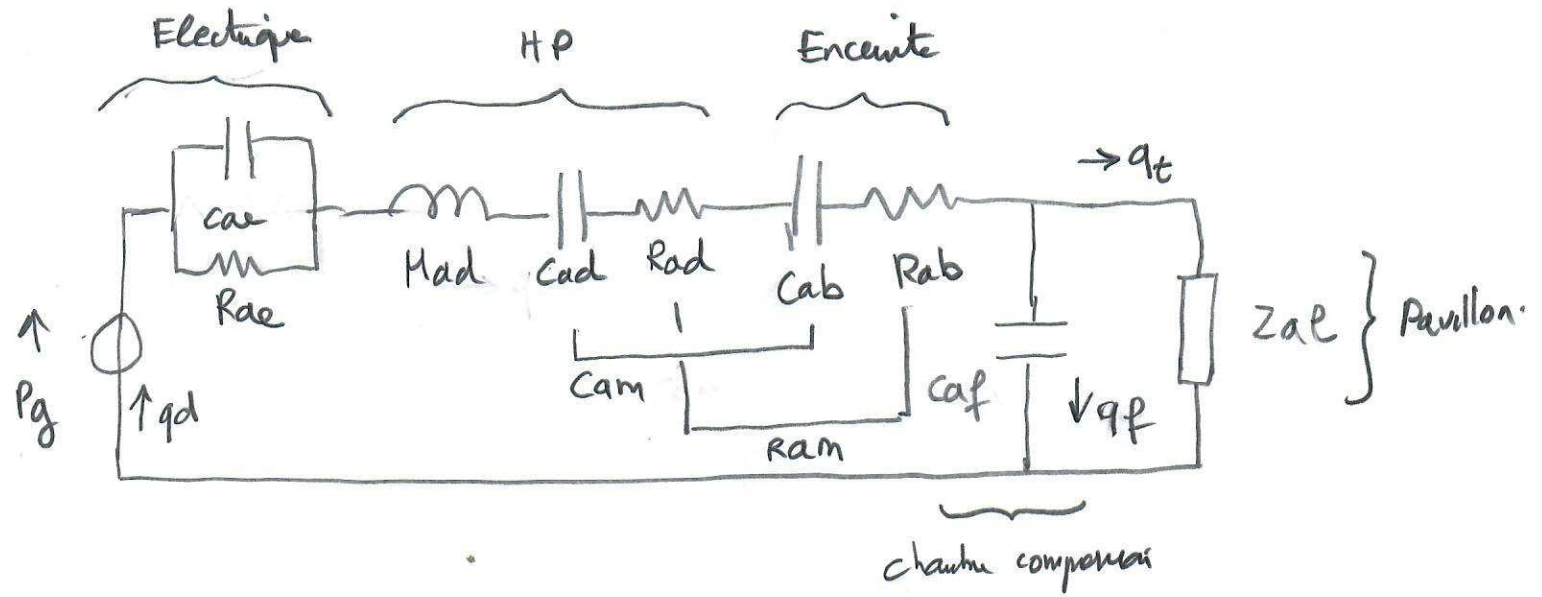 Electrique
HP
Enceinte
→ qt
Cae
Rae
Mad
Cad
Rad
Cab
Rab
Zal
Pavillon.
↑
Pg
↑ qd
Cam
Ram
Caf
↓ qf
chambre compression